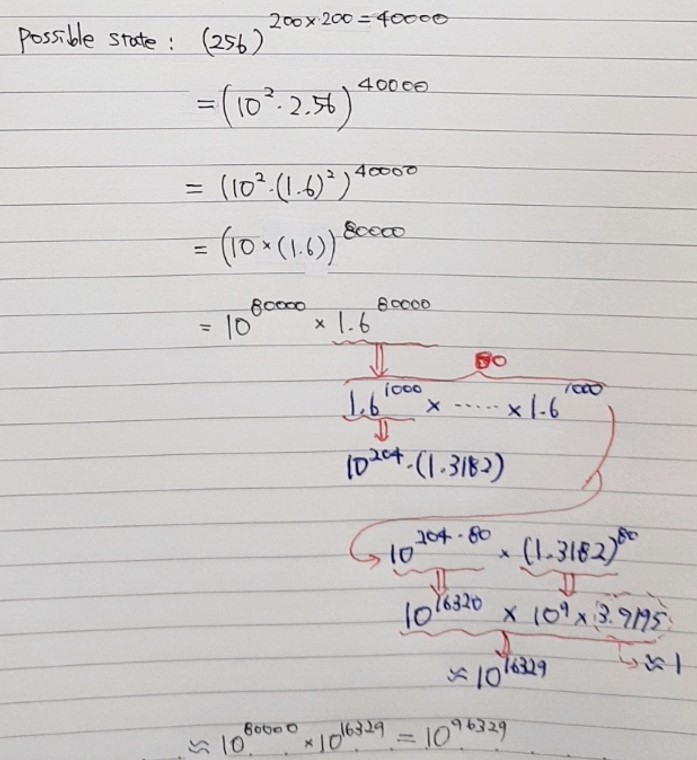 Possible state : (256)^200×200 = 40000
= (10^2 · 2.56)^40000
= (10^2 · (1.6)^2)^40000
= (10 × (1.6))^80000
= 10^80000 × 1.6^80000
⇓ 80
1.6^1000 × ······ × 1.6^1000
⇓
10^204 · (1.3182)
10^204·80 × (1.3182)^80
⇓ ⇓
10^16320 × 10^9 × 3.9195
≈ 10^16329 ↳ ≈ 1
≈ 10^80000 × 10^16329 = 10^96329